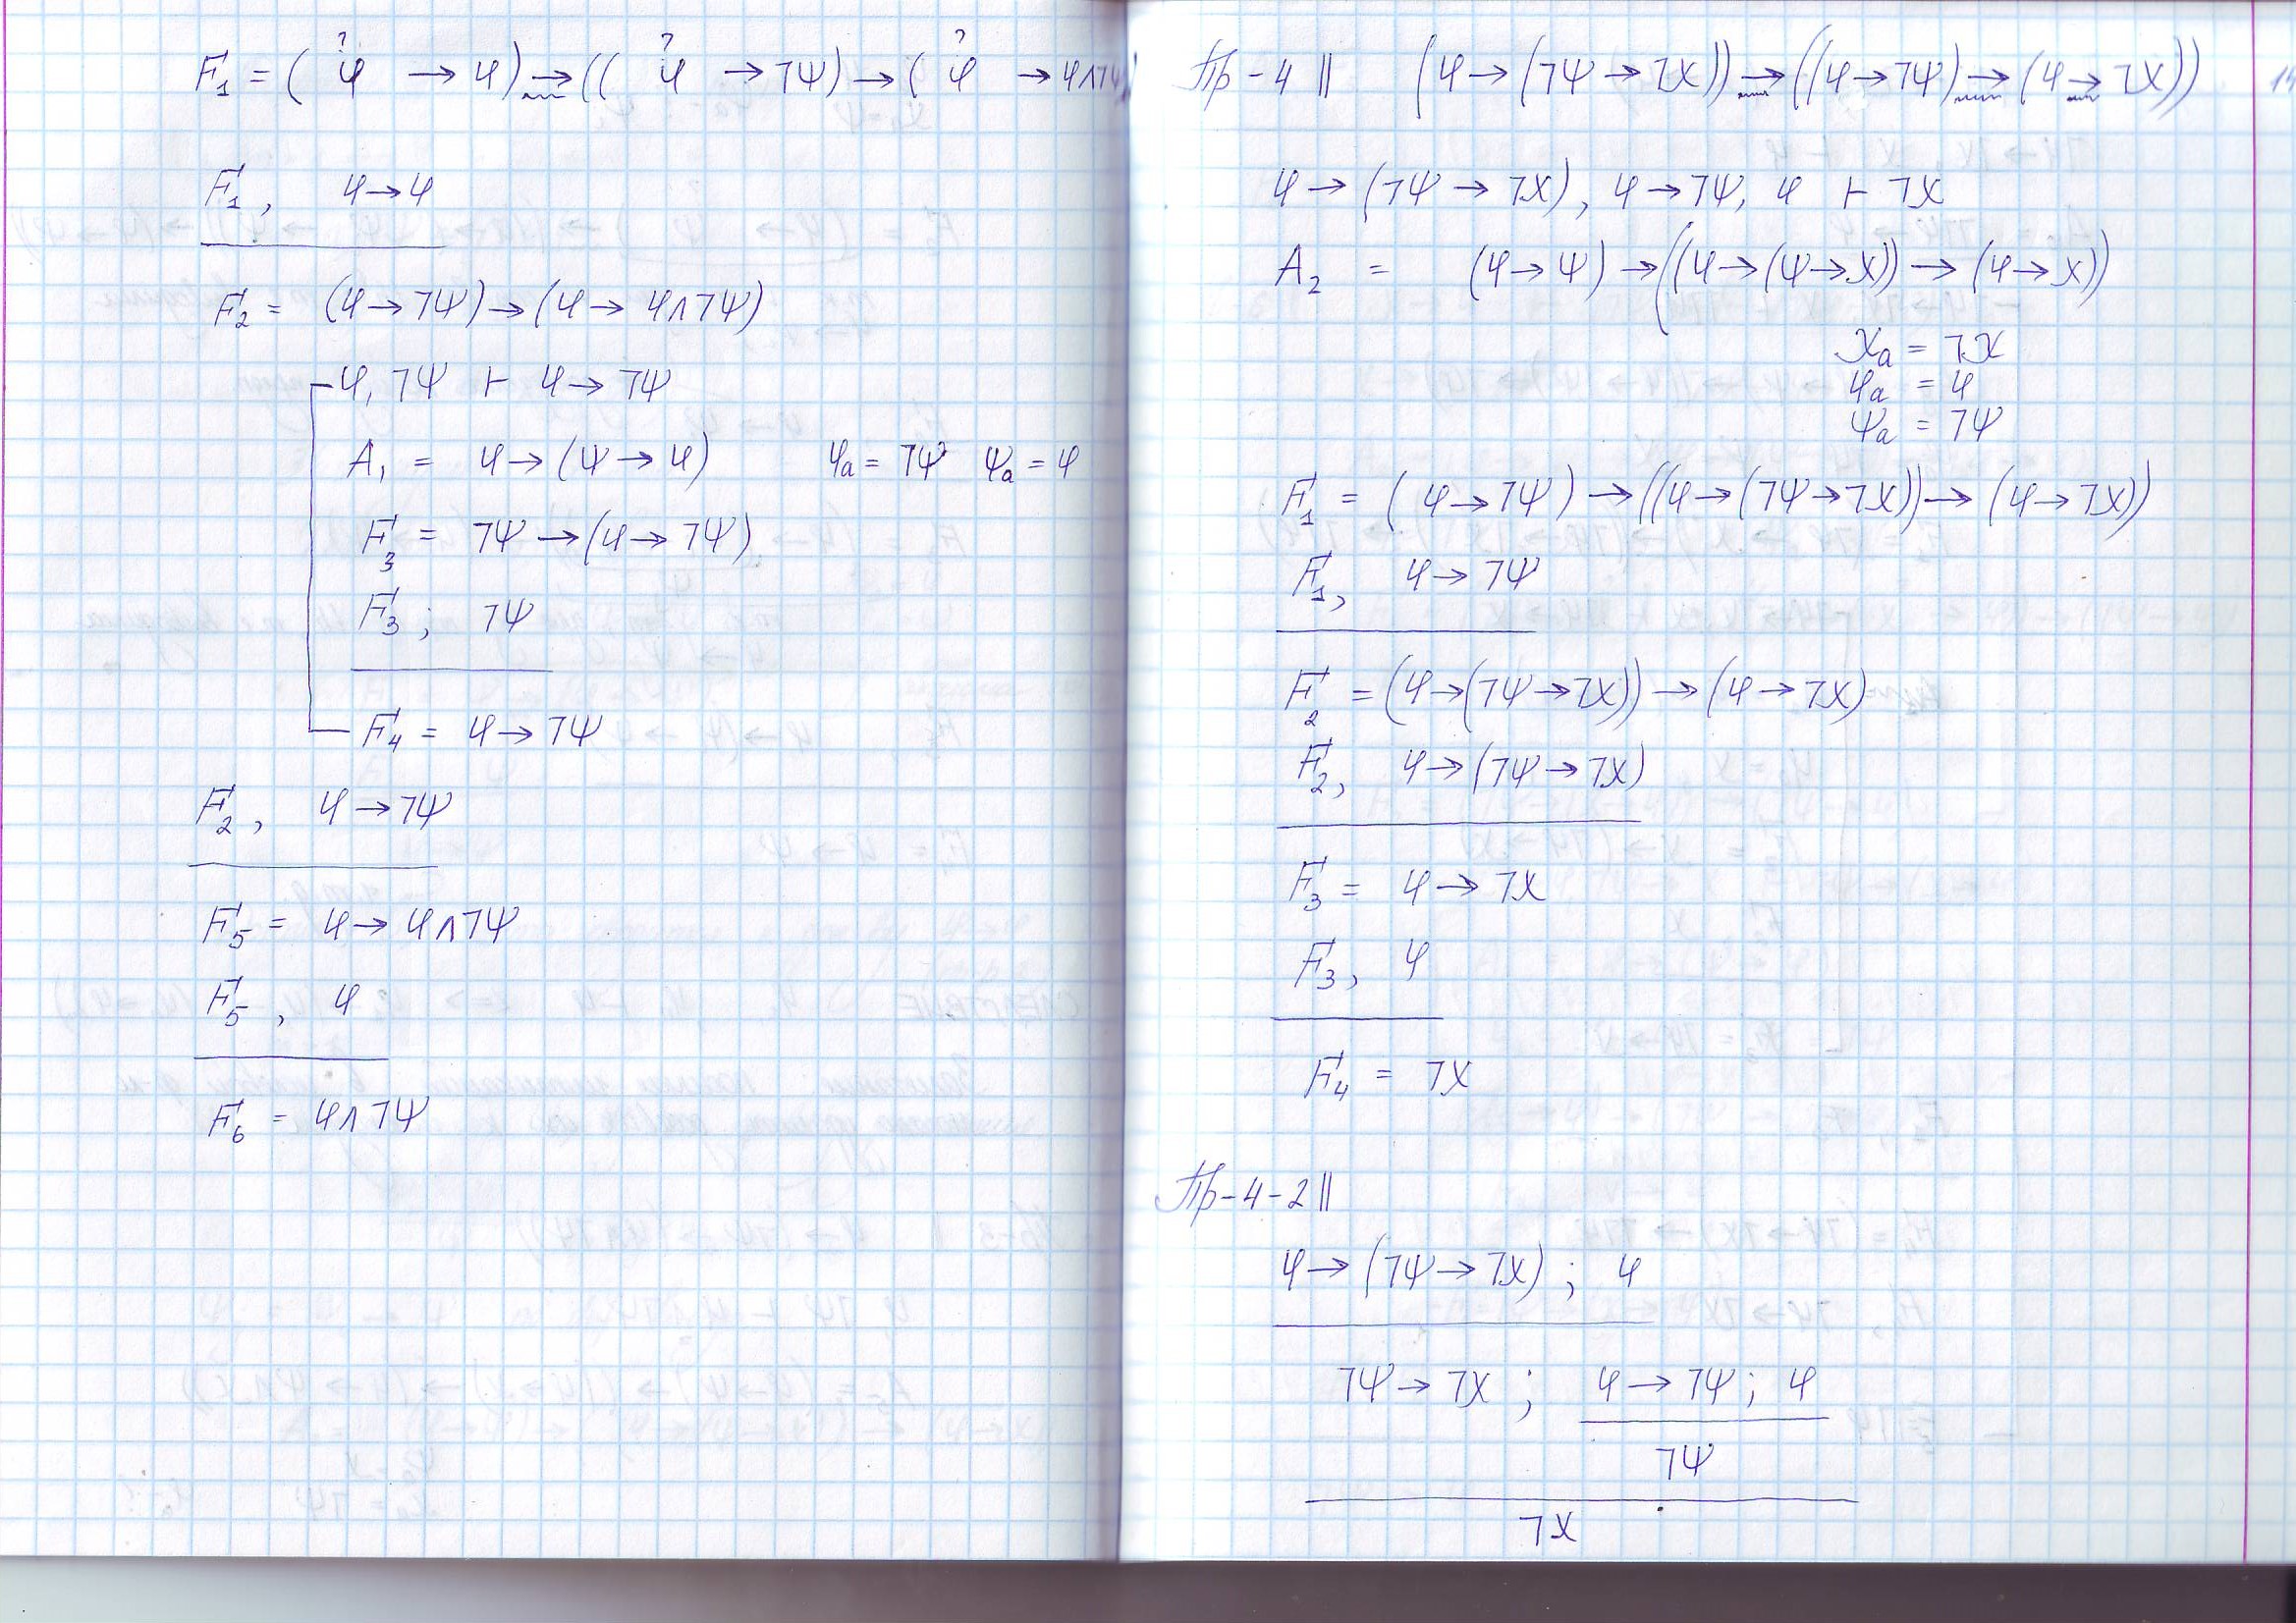 F₁ = ( φ → φ) → (( φ → ⌉ψ) → ( φ → φ∧⌉ψ)
? ? ?
F₁ , φ→φ
F₂ = (φ→⌉ψ)→(φ→φ∧⌉ψ)
φ, ⌉ψ ⊢ φ→⌉ψ
A₁ = φ→(ψ→φ) φₐ = ⌉ψ ψₐ = φ
F₃ = ⌉ψ→(φ→⌉ψ)
F₃ ; ⌉ψ
F₄ = φ→⌉ψ
F₂ , φ→⌉ψ
F₅ = φ→φ∧⌉ψ
F₅ , φ
F₆ = φ∧⌉ψ
Пр-4 || (φ→(⌉ψ→⌉χ))→((φ→⌉ψ)→(φ→⌉χ))
φ→(⌉ψ→⌉χ), φ→⌉ψ, φ ⊢ ⌉χ
A₂ = (φ→ψ)→((φ→(ψ→χ))→(φ→χ))
χₐ = ⌉χ
φₐ = φ
ψₐ = ⌉ψ
F₁ = (φ→⌉ψ)→((φ→(⌉ψ→⌉χ))→(φ→⌉χ))
F₁, φ→⌉ψ
F₂ = (φ→(⌉ψ→⌉χ))→(φ→⌉χ)
F₂, φ→(⌉ψ→⌉χ)
F₃ = φ→⌉χ
F₃, φ
F₄ = ⌉χ
Пр-4-2||
φ→(⌉ψ→⌉χ) ; φ
⌉ψ→⌉χ ; φ→⌉ψ; φ
⌉ψ
⌉χ